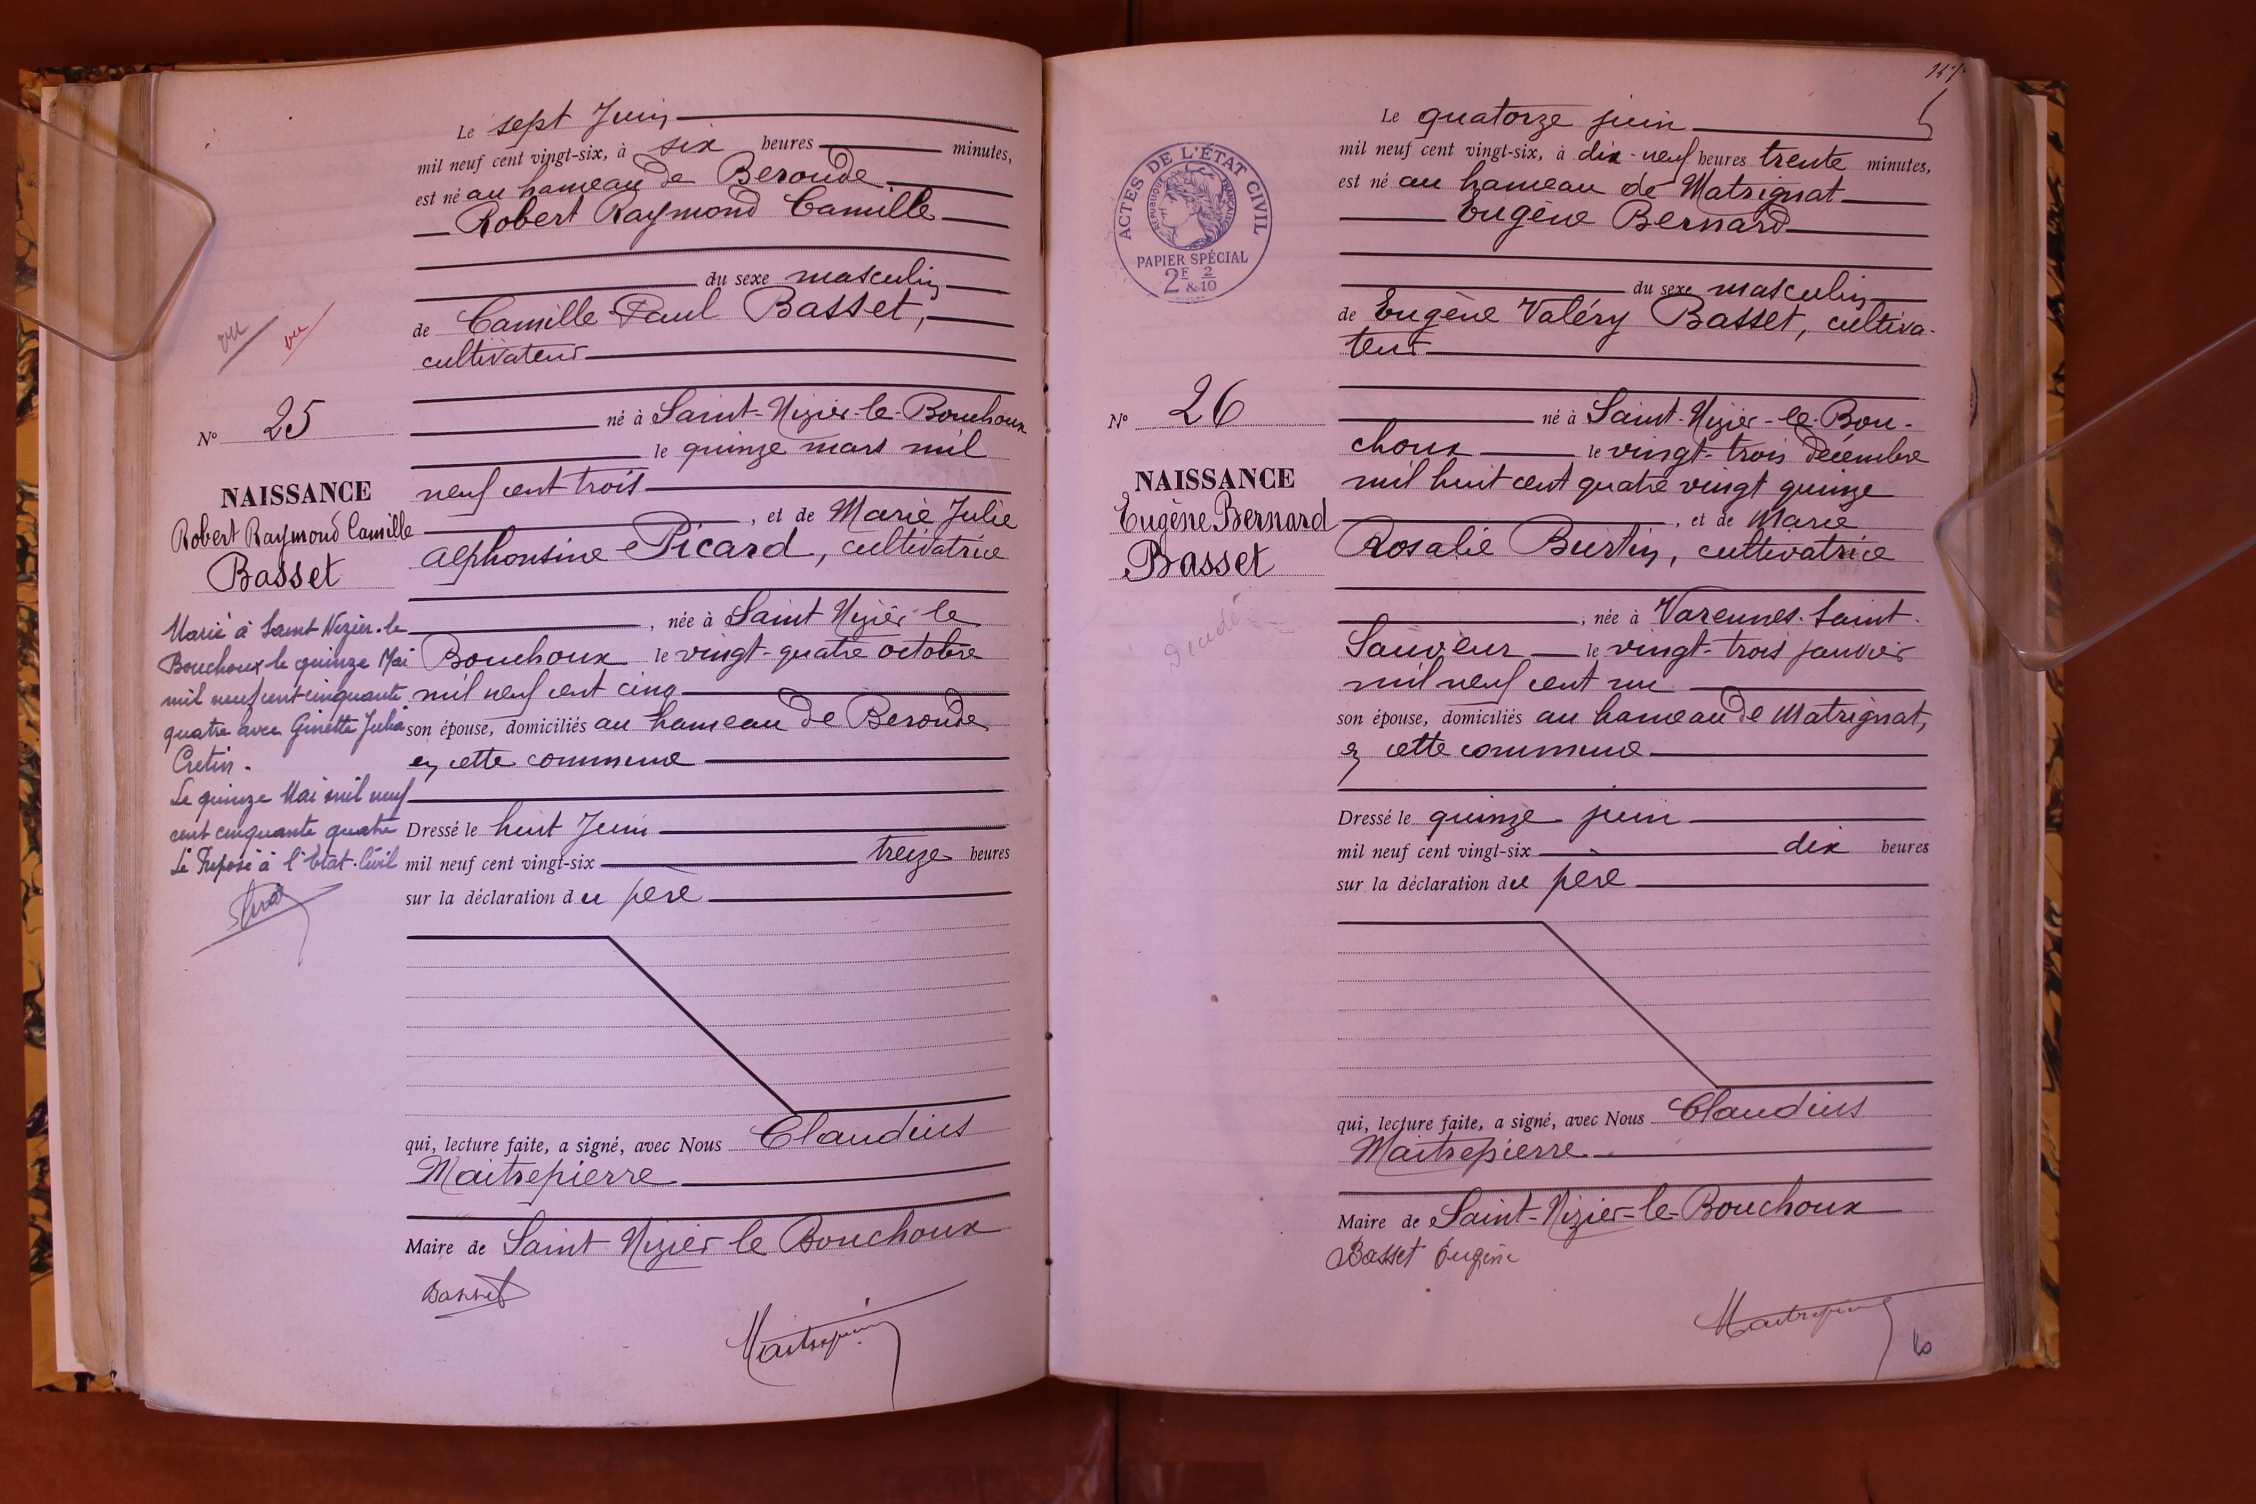 vu
vu
N° 25
NAISSANCE
Robert Raymond Camille
Basset
Marié à Saint Nizier-le
Bouchoux le quinze Mai
mil neuf cent cinquante
quatre avec Ginette Julia
Cretin.
Le quinze Mai mil neuf
cent cinquante quatre
Le Préposé à l'Etat-Civil
Le sept Juin
mil neuf cent vingt-six, à six heures minutes,
est né au hameau de Beroude
Robert Raymond Camille
du sexe masculin
de Camille Paul Basset,
cultivateur
né à Saint-Nizier-le-Bouchoux
le quinze mars mil
neuf cent trois
, et de Marie Julie
Alphonsine Picard, cultivatrice
, née à Saint Nizier le
Bouchoux le vingt-quatre octobre
mil neuf cent cinq
son épouse, domiciliés au hameau de Beroude
en cette commune
Dressé le huit Juin
mil neuf cent vingt-six treize heures
sur la déclaration du père
qui, lecture faite, a signé, avec Nous Claudius
Maitrepierre
Maire de Saint Nizier le Bouchoux
Basset
Maitrepierre
ACTES DE L'ÉTAT CIVIL
RÉPUBLIQUE FRANÇAISE
PAPIER SPÉCIAL
2E 2
& 10
N° 26
NAISSANCE
Eugène Bernard
Basset
Décédé
Le quatorze juin
mil neuf cent vingt-six, à dix-neuf heures trente minutes,
est né au hameau de Matrignat
Eugène Bernard
du sexe masculin
de Eugène Valéry Basset, cultiva-
teur
né à Saint-Nizier-le-Bou-
choux le vingt-trois décembre
mil huit cent quatre vingt quinze
, et de Marie
Rosalie Burtin, cultivatrice
, née à Varennes-Saint-
Sauveur le vingt-trois janvier
mil neuf cent un
son épouse, domiciliés au hameau de Matrignat,
en cette commune
Dressé le quinze juin
mil neuf cent vingt-six dix heures
sur la déclaration du père
qui, lecture faite, a signé, avec Nous Claudius
Maitrepierre
Maire de Saint-Nizier-le-Bouchoux
Basset Eugène
Maitrepierre